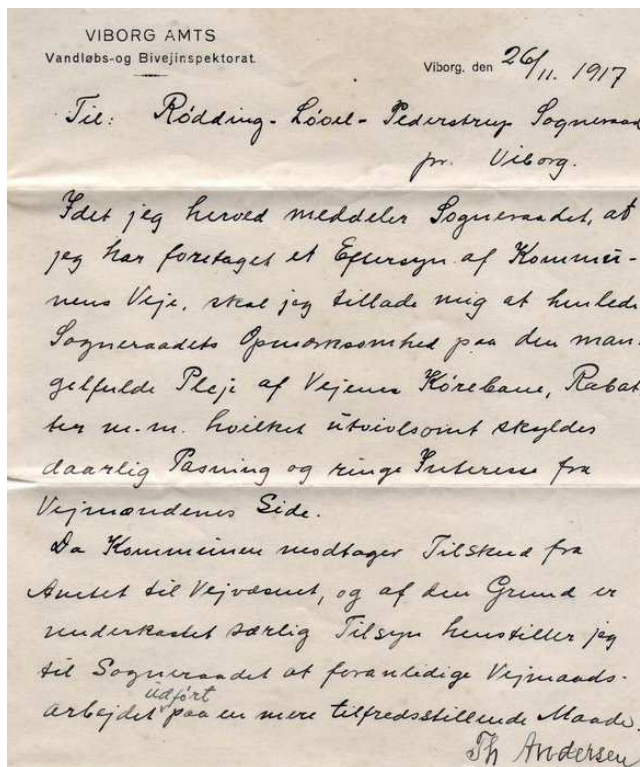 VIBORG AMTS
Vandløbs-og Bivejinspektorat.
Viborg, den 26/11. 1917
Til: Rødding-Løvel-Pederstrup Sogneraad
pr. Viborg.
Idet jeg herved meddeler Sogneraadet, at
jeg har foretaget et Eftersyn af Kommu-
nens Veje, skal jeg tillade mig at henlede
Sogneraadets Opmærksomhed paa den man-
gelfulde Pleje af Vejens Kørebane, Rabat-
ter m.m. hvilket utvivlsomt skyldes
daarlig Pasning og ringe Interesse fra
Vejmændenes Side.
Da Kommunen modtager Tilskud fra
Amtet til Vejvæsnet, og af den Grund er
underkastet særlig Tilsyn henstiller jeg
til Sogneraadet at foranledige Vejmands-
udført
arbejdet paa en mere tilfredsstillende Maade.
Th Andersen